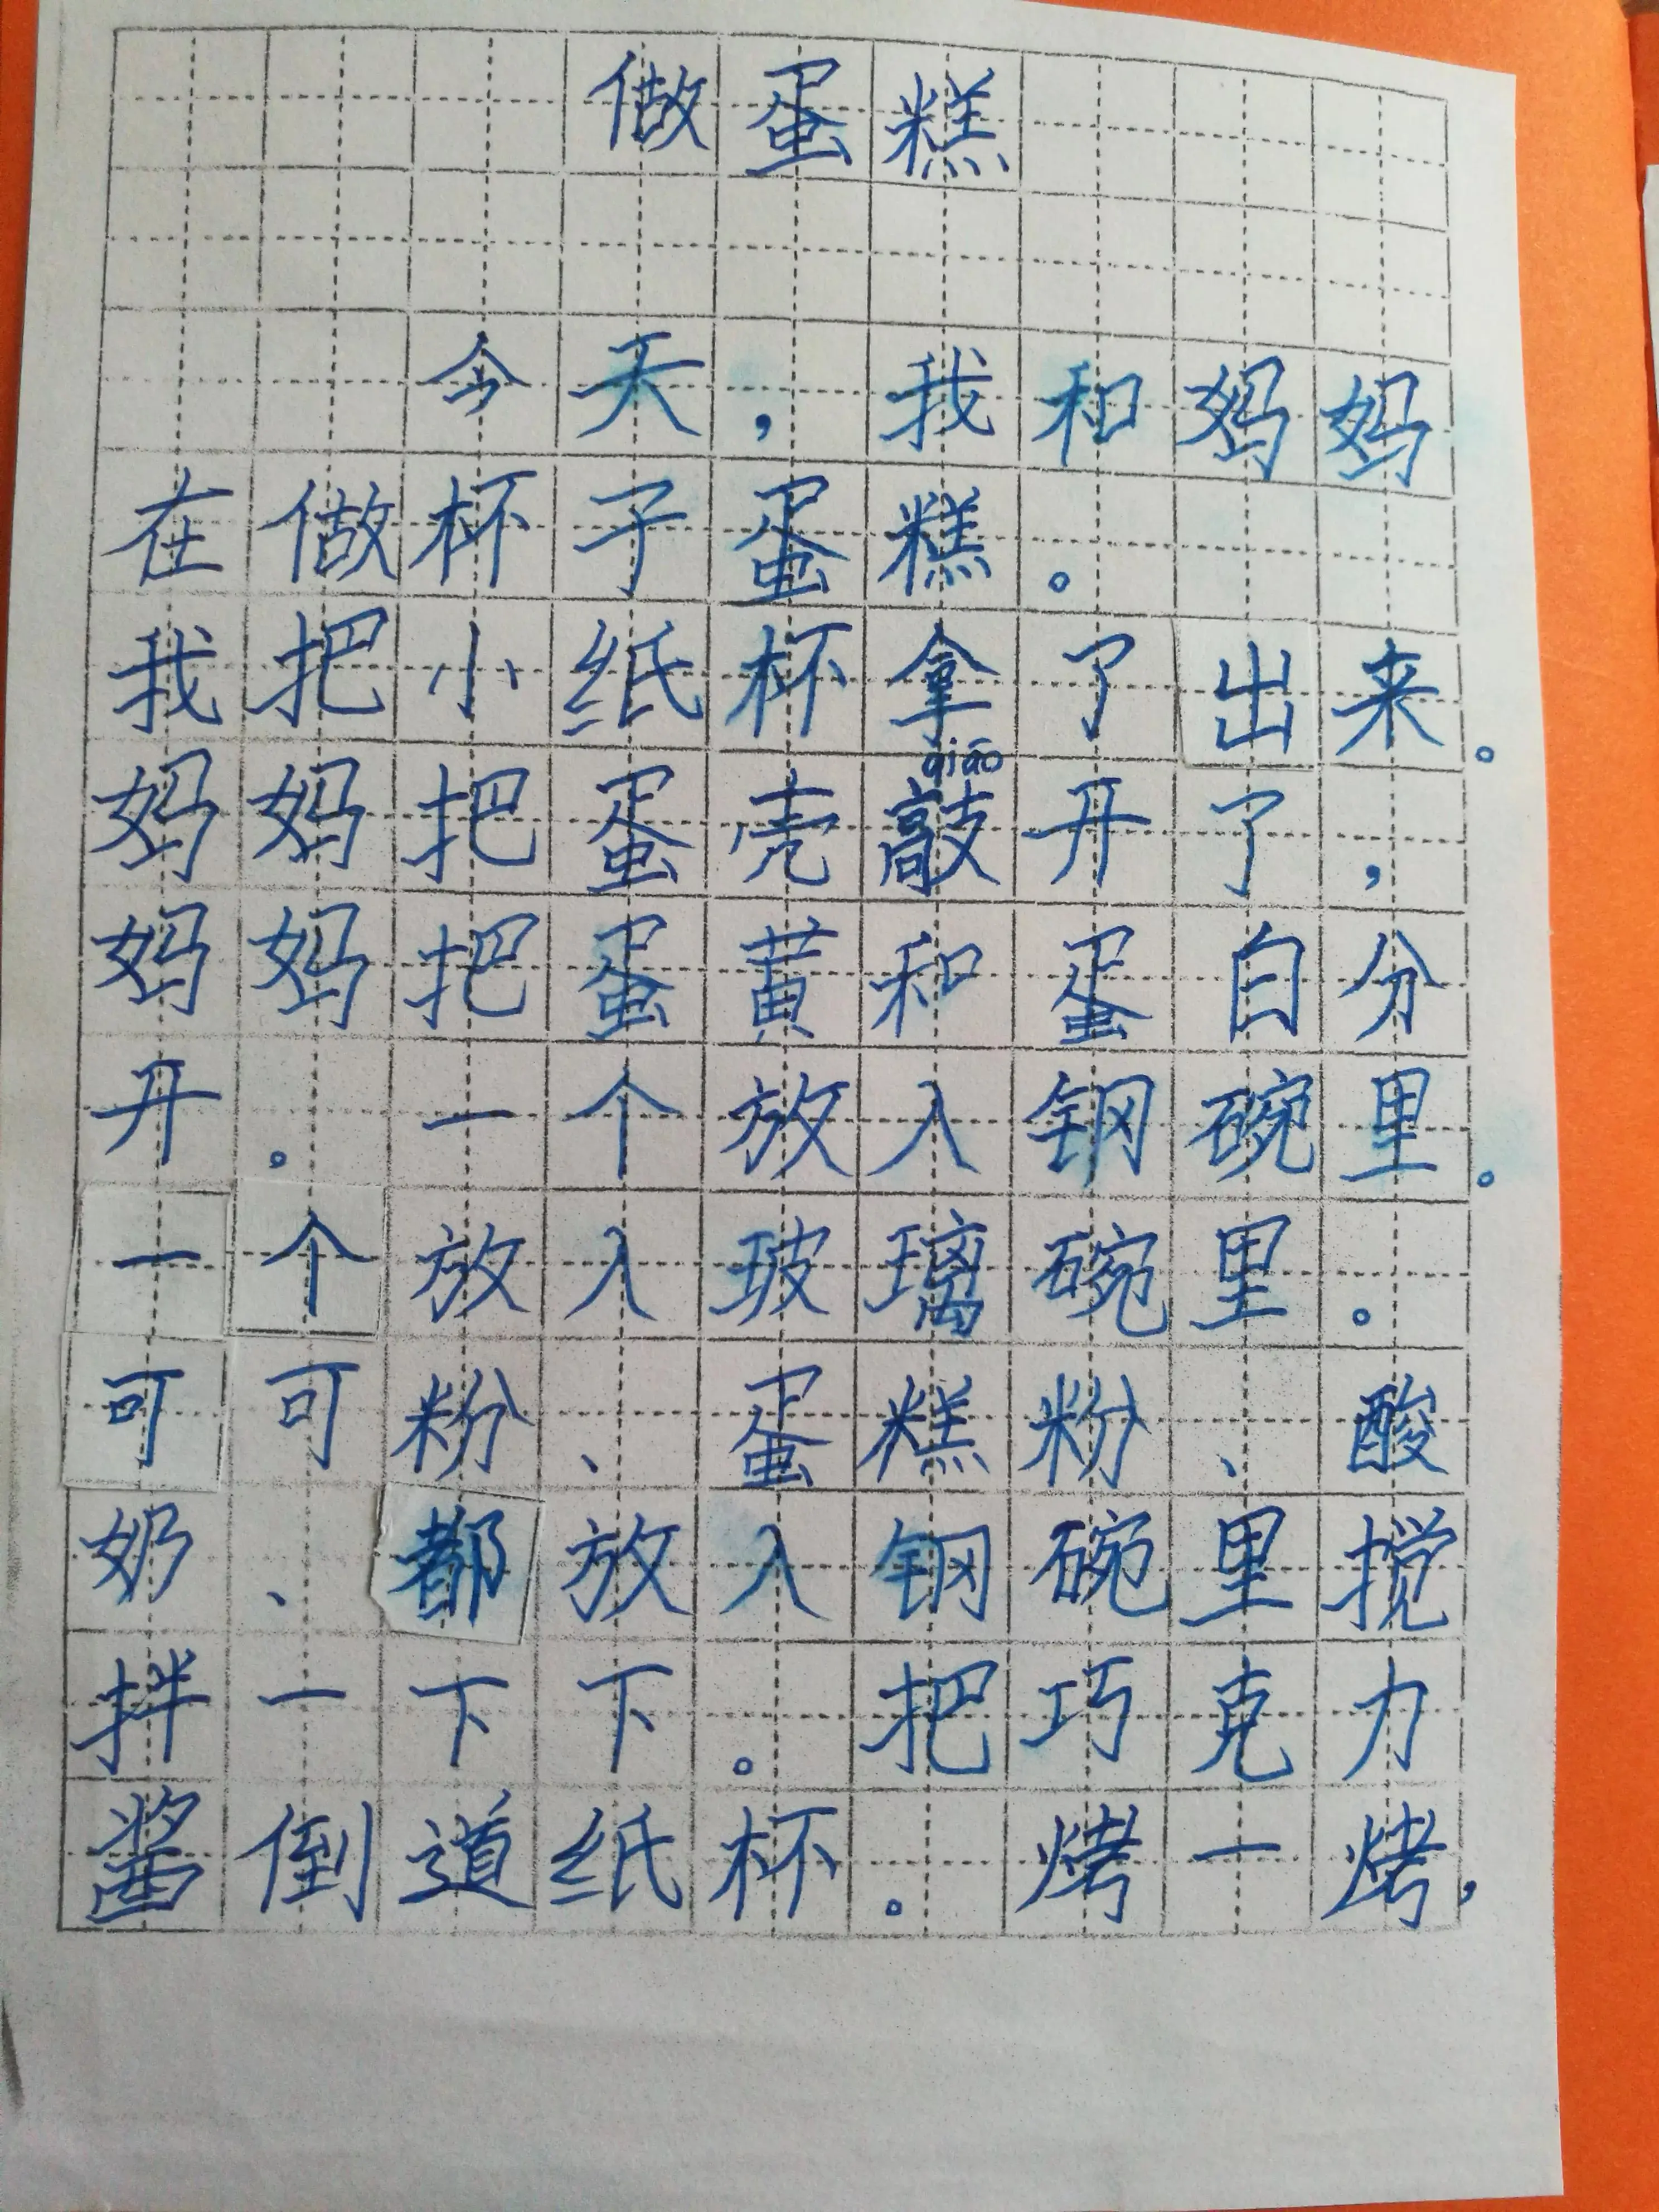 做蛋糕
今天，我和妈妈
在做杯子蛋糕。
我把小纸杯拿了出来。
qiāo
妈妈把蛋壳敲开了，
妈妈把蛋黄和蛋白分
开。一个放入钢碗里。
一个放入玻璃碗里。
可可粉、蛋糕粉、酸
奶、都放入钢碗里搅
拌一下下。把巧克力
酱倒道纸杯。烤一烤，